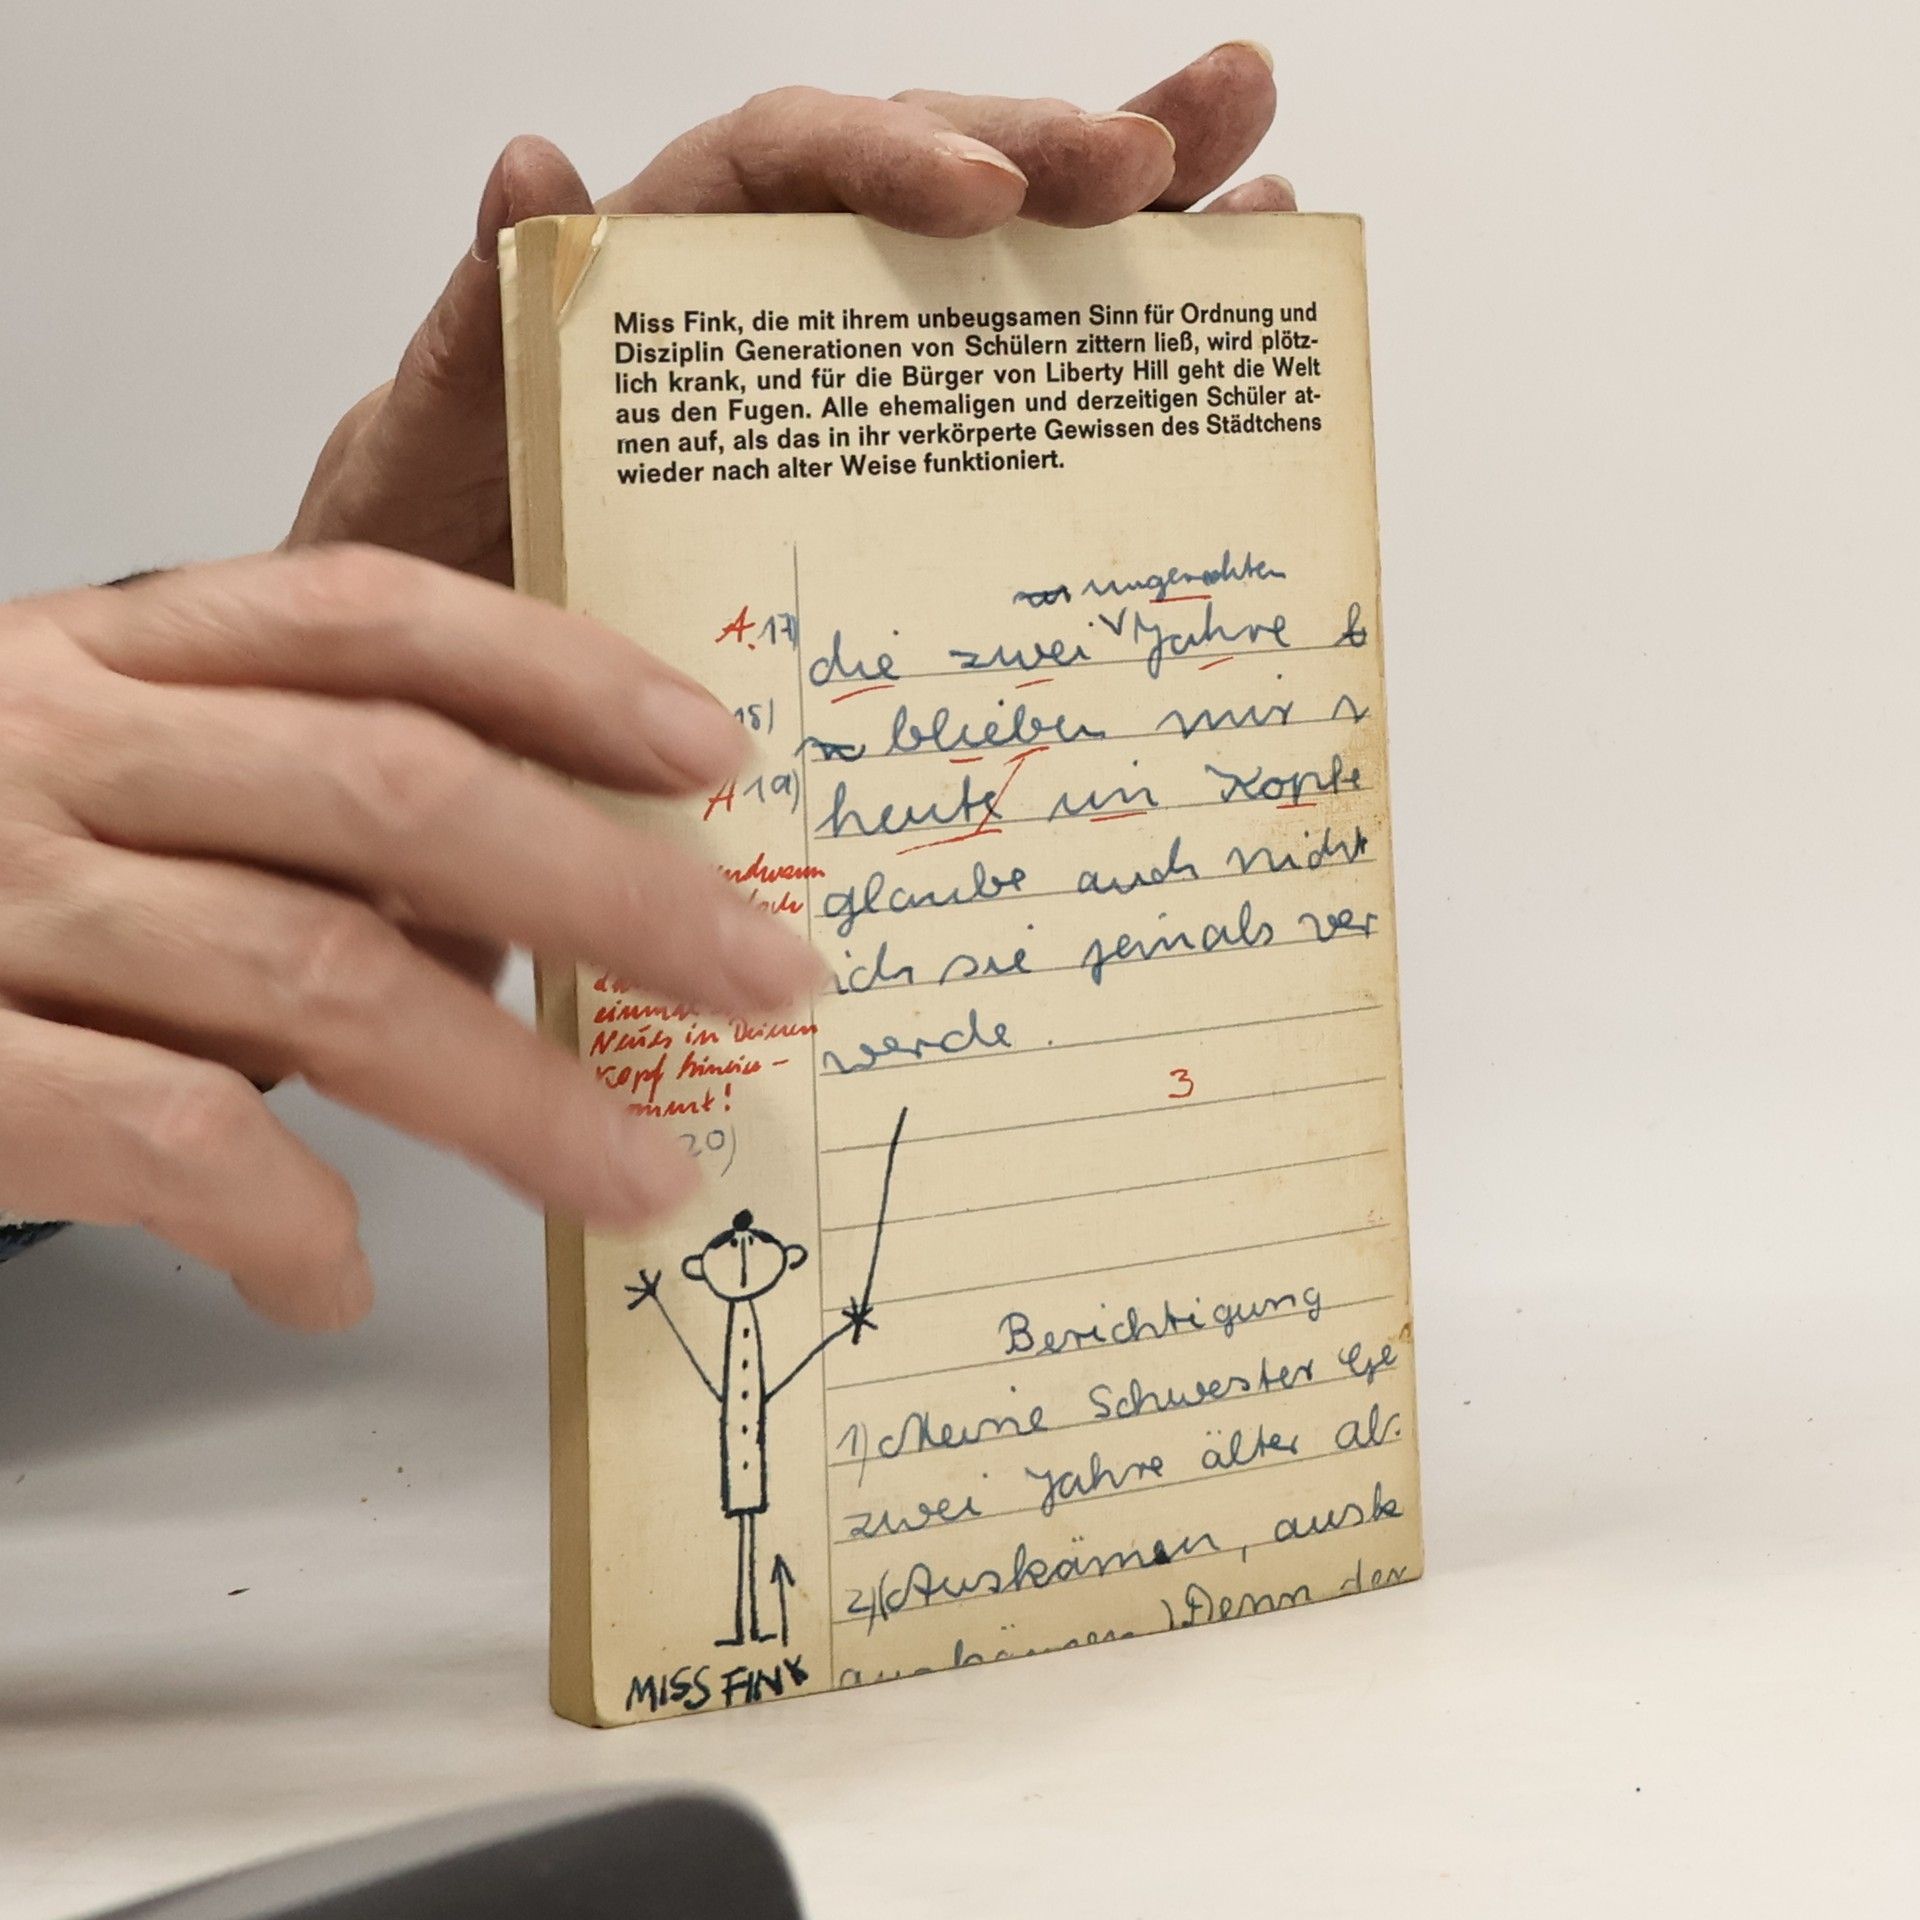 Miss Fink, die mit ihrem unbeugsamen Sinn für Ordnung und
Disziplin Generationen von Schülern zittern ließ, wird plötz-
lich krank, und für die Bürger von Liberty Hill geht die Welt
aus den Fugen. Alle ehemaligen und derzeitigen Schüler at-
men auf, als das in ihr verkörperte Gewissen des Städtchens
wieder nach alter Weise funktioniert.
A. 17)
die zwei Jahre
18)
blieben mir
A 19)
heute im Kopfe
glaube auch nicht
ich sie jemals ver
werde.
einmal
Neues in Deinen
Kopf hinein-
3
20)
Berichtigung
1) Meine Schwester Ge
zwei Jahre älter als
2) (Auskämen, ausk
) Denn der
MISS FINK